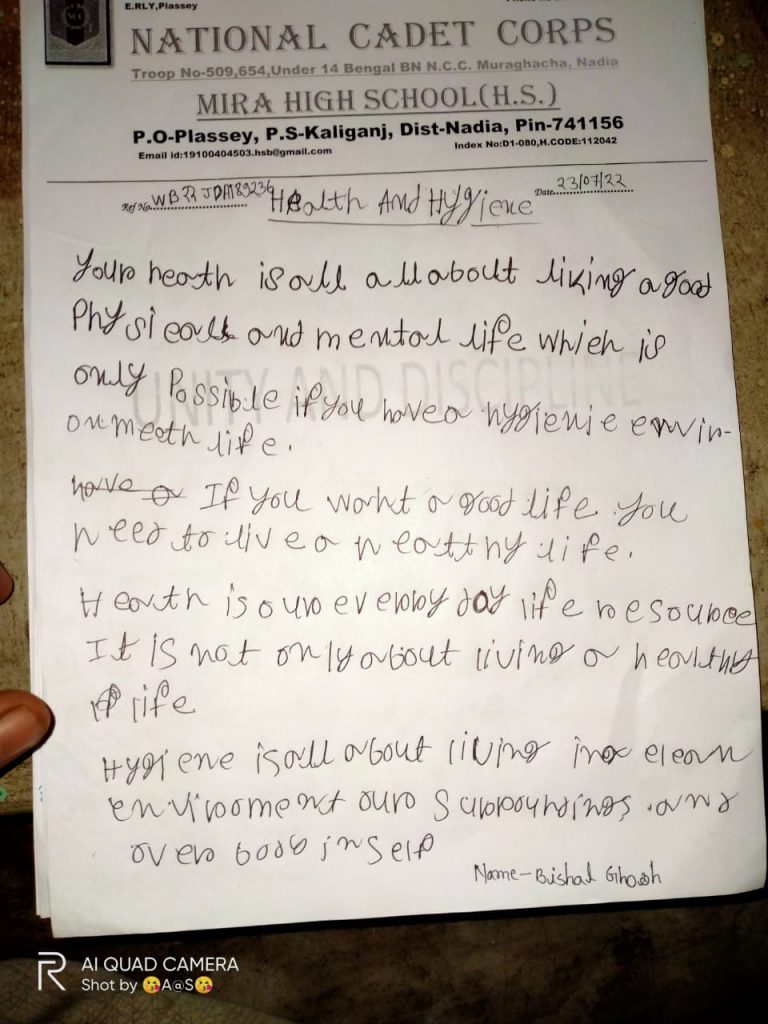 E.RLY,Plassey
NATIONAL CADET CORPS
Troop No-509,654,Under 14 Bengal BN N.C.C. Muraghacha, Nadia
MIRA HIGH SCHOOL(H.S.)
P.O-Plassey, P.S-Kaliganj, Dist-Nadia, Pin-741156
Email id:19100404503.hsb@gmail.com Index No:D1-080,H.CODE:112042
Ref No. WB22JDA189236 Date 23/07/22
Health And Hygiene
Your heath is all all about living a good
Physical and mental life which is
only Possible if you have a hygienie envin-
onmeeth life.
have a If you want a good life you
need to live a heatthy life.
Heath is our everyday life resource
It is not only about living a healthy
life
Hygiene is all about living in a clean
environment our surroundings. and
over body inself
UNITY AND DISCIPLINE
Name- Bishal Ghosh
AI QUAD CAMERA
Shot by 😘A@S😘